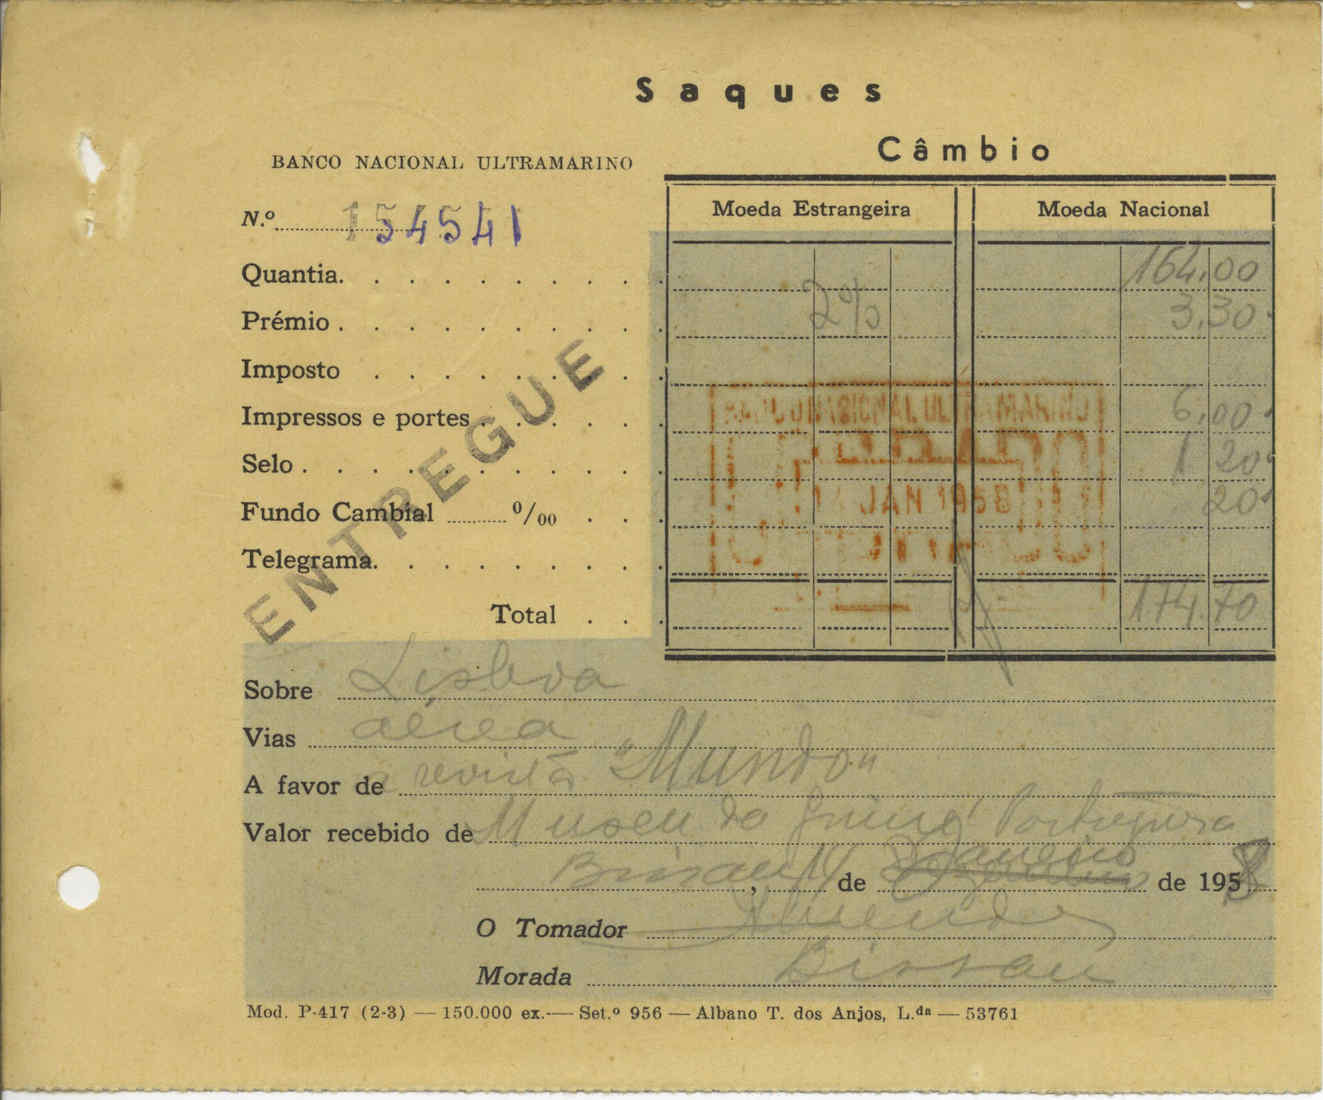 Saques
Câmbio
BANCO NACIONAL ULTRAMARINO
Moeda Estrangeira Moeda Nacional
N.º 154541
Quantia. 164.00
Prémio. 2% 3.30
Imposto
Impressos e portes 6.00
Selo. 1 20
Fundo Cambial % 20
Telegrama.
Total 174.70
ENTREGUE
BANCO NACIONAL ULTRAMARINO
14 JAN 1958
Sobre Lisboa
Vias aérea
A favor de a revista "Mundo"
Valor recebido de Museu da Guiné Portuguesa
Bissau, 14 de Janeiro de 1958
O Tomador
Morada Bissau
Mod. P-417 (2-3) — 150.000 ex.— Set.º 956 — Albano T. dos Anjos, L.da — 53761